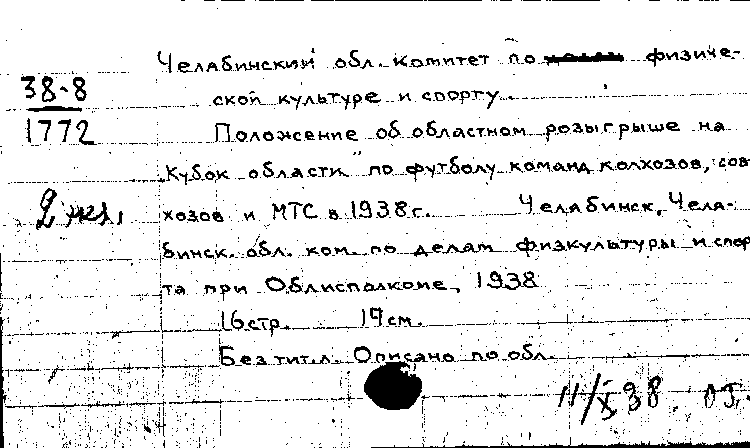 Челябинский обл. комитет по физиче-
38-8
ской культуре и спорту.
1772
Положение об областном розыгрыше на
"Кубок области" по футболу команд колхозов, сов
2 экз.
хозов и МТС в 1938 г. Челябинск, Челя-
бинск. обл. ком. по делам физкультуры и спор
та при Облисполкоме, 1938
16 стр. 17 см.
Без тит. л. Описано по обл.
11/X 38.